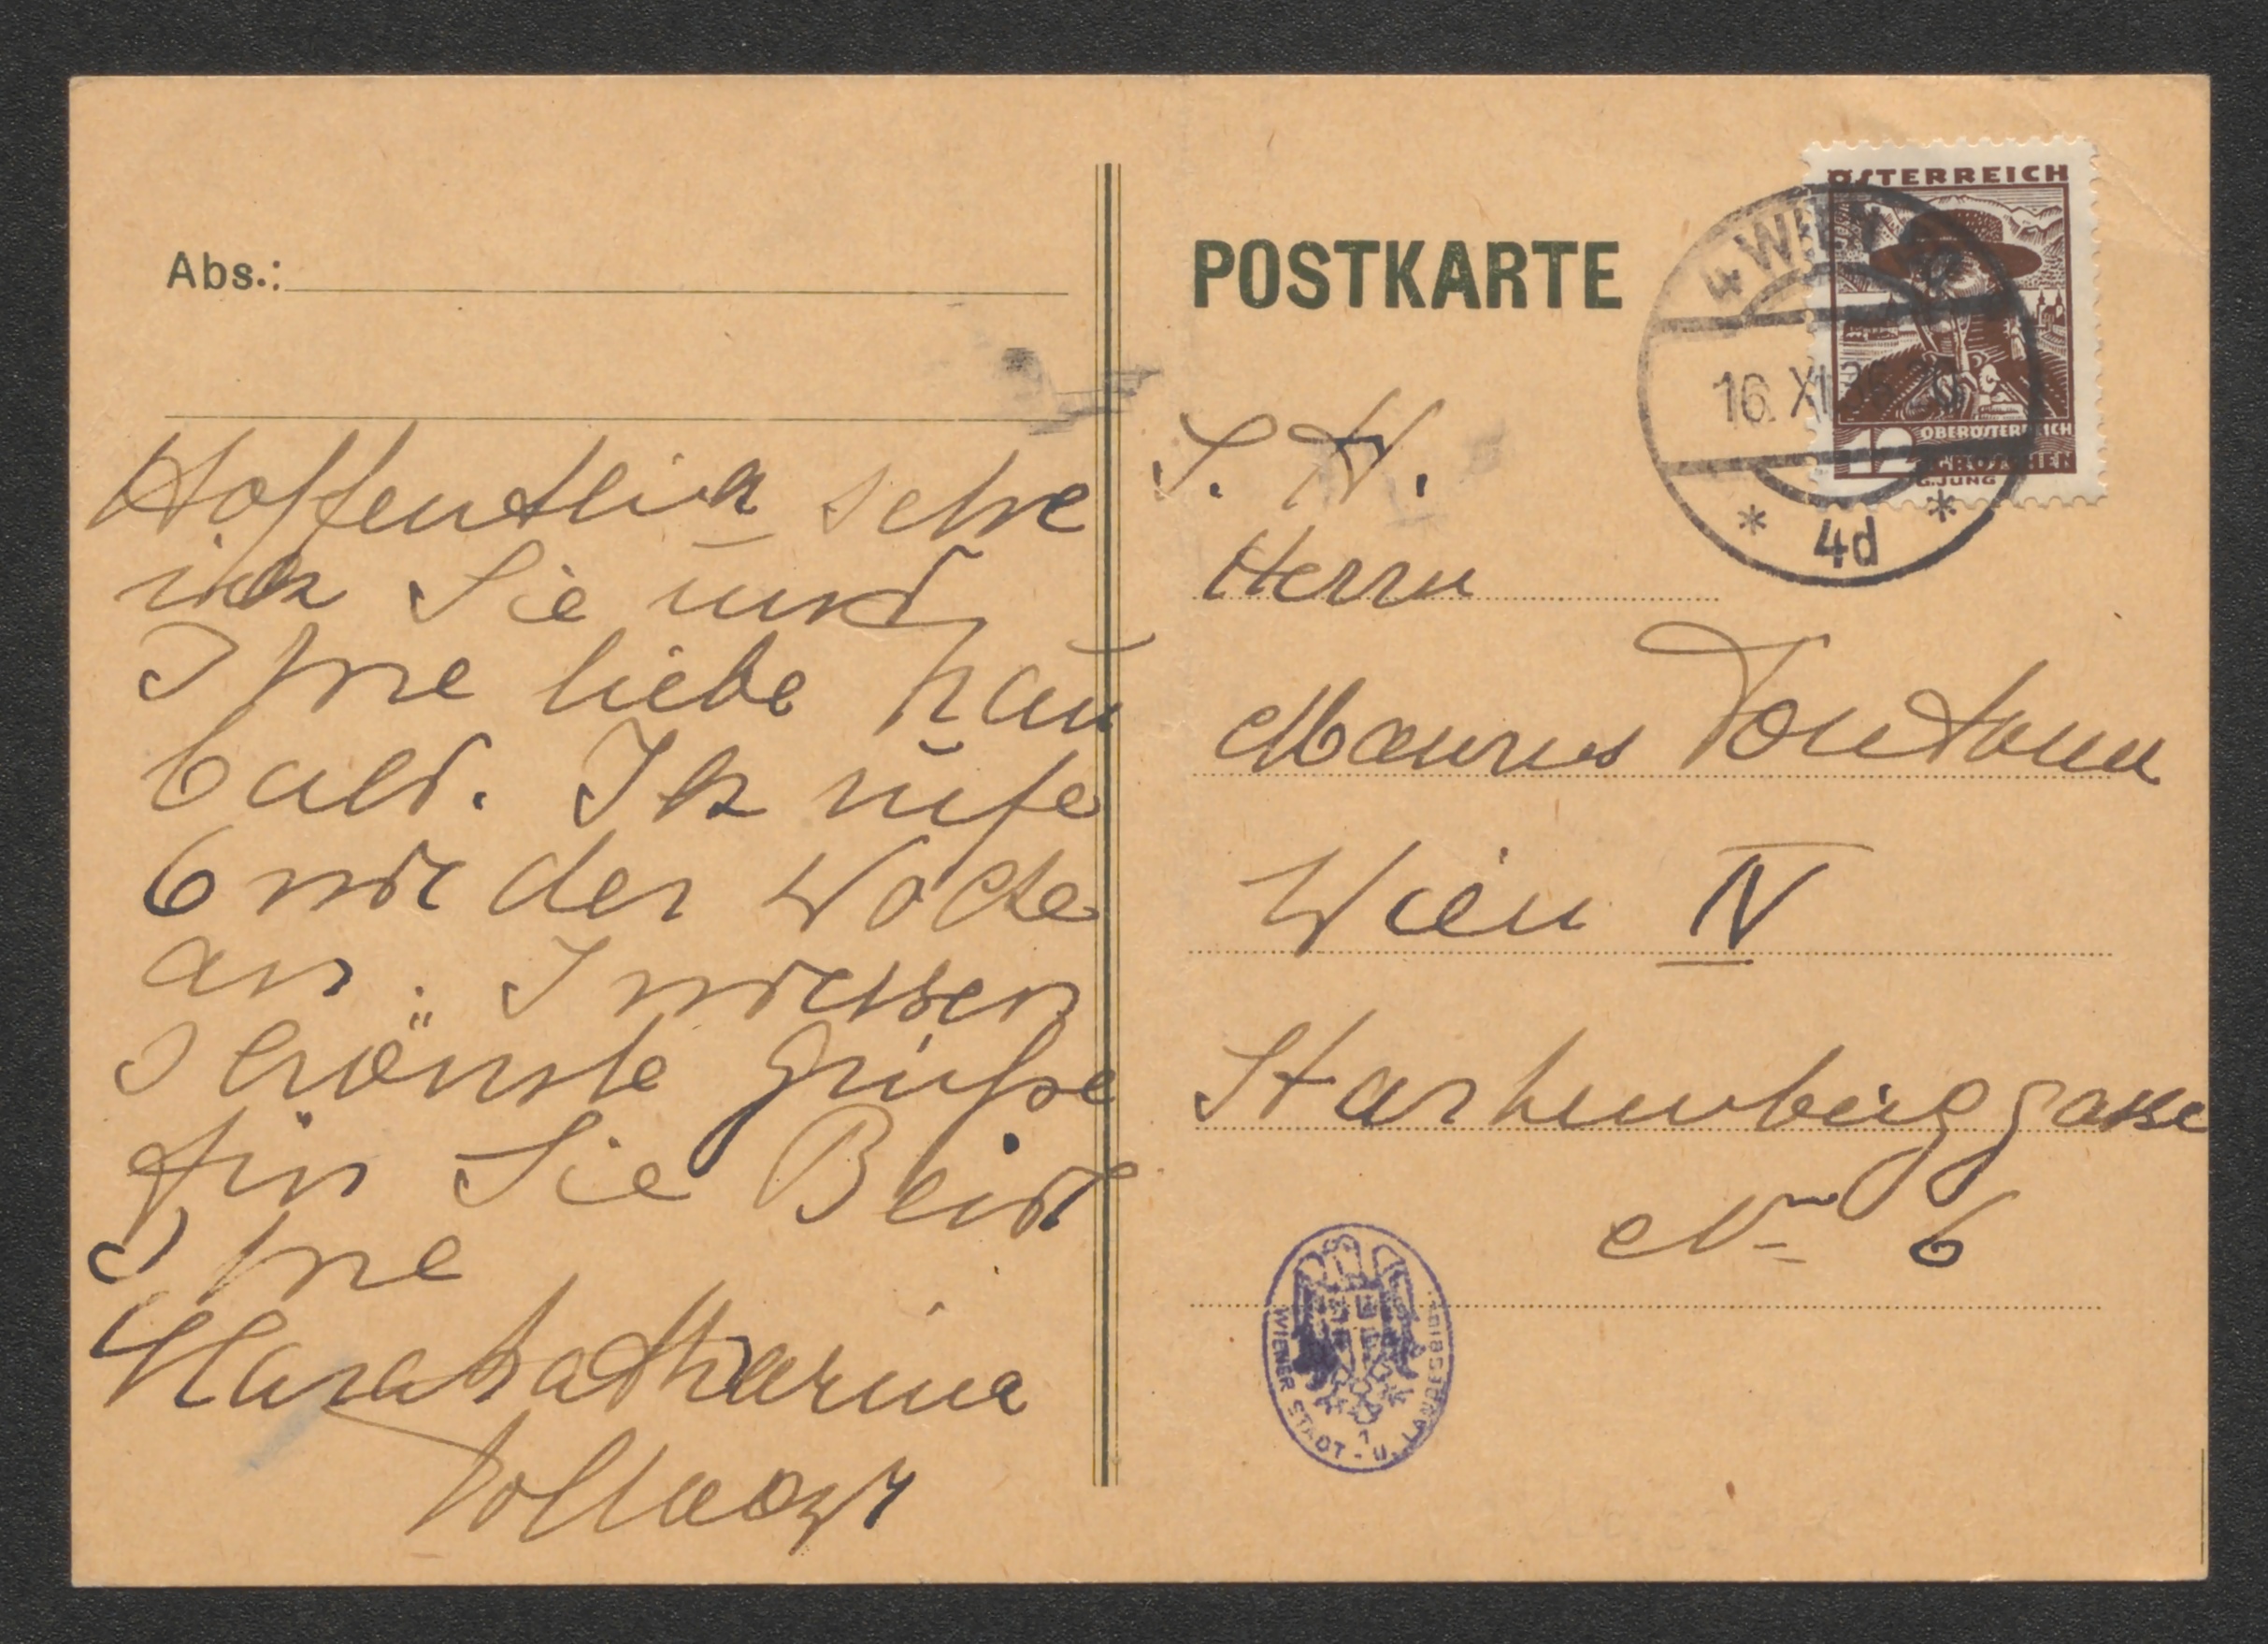 Abs.:
Hoffentlich sehe
ich Sie und
Ihre liebe Frau
bald. Ich rufe
Ende der Woche
an. Indessen
schönste Grüße
für Sie Beide
Ihre
Klara Katharina
Pollaczek
POSTKARTE
S. H.
Herrn
Maurus Fontana
Wien IV
Starhemberggasse
Nr 6
ÖSTERREICH
12 OBERÖSTERREICH
GROSCHEN
G. JUNG
4 WIEN
16. XI. 36. 20
* 4d *
WIENER STADT - U. LANDESBIBL